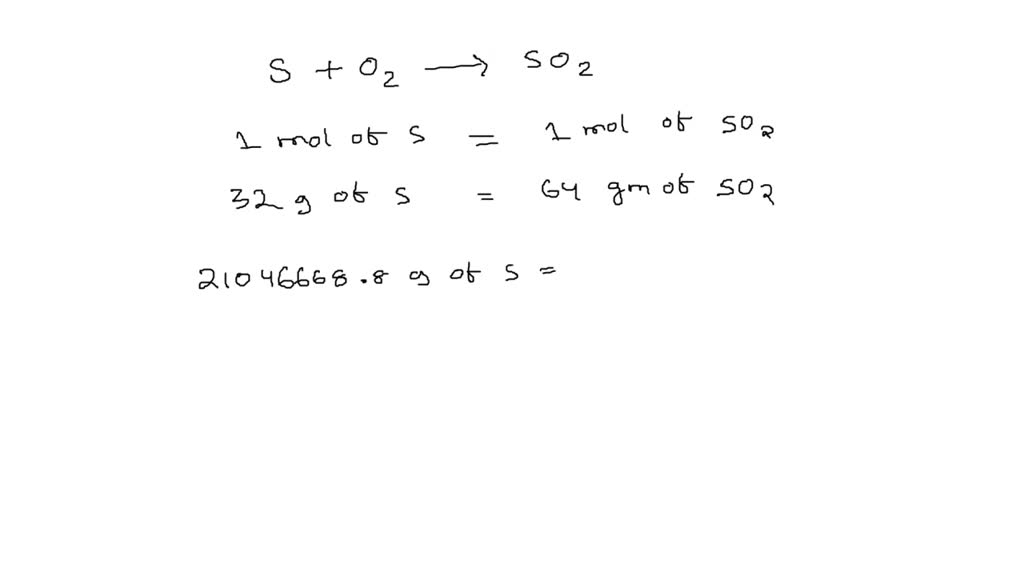 S + O2 → SO2
1 mol of S = 1 mol of SO2
32 g of S = 64 gm of SO2
21046668.8 g of S =